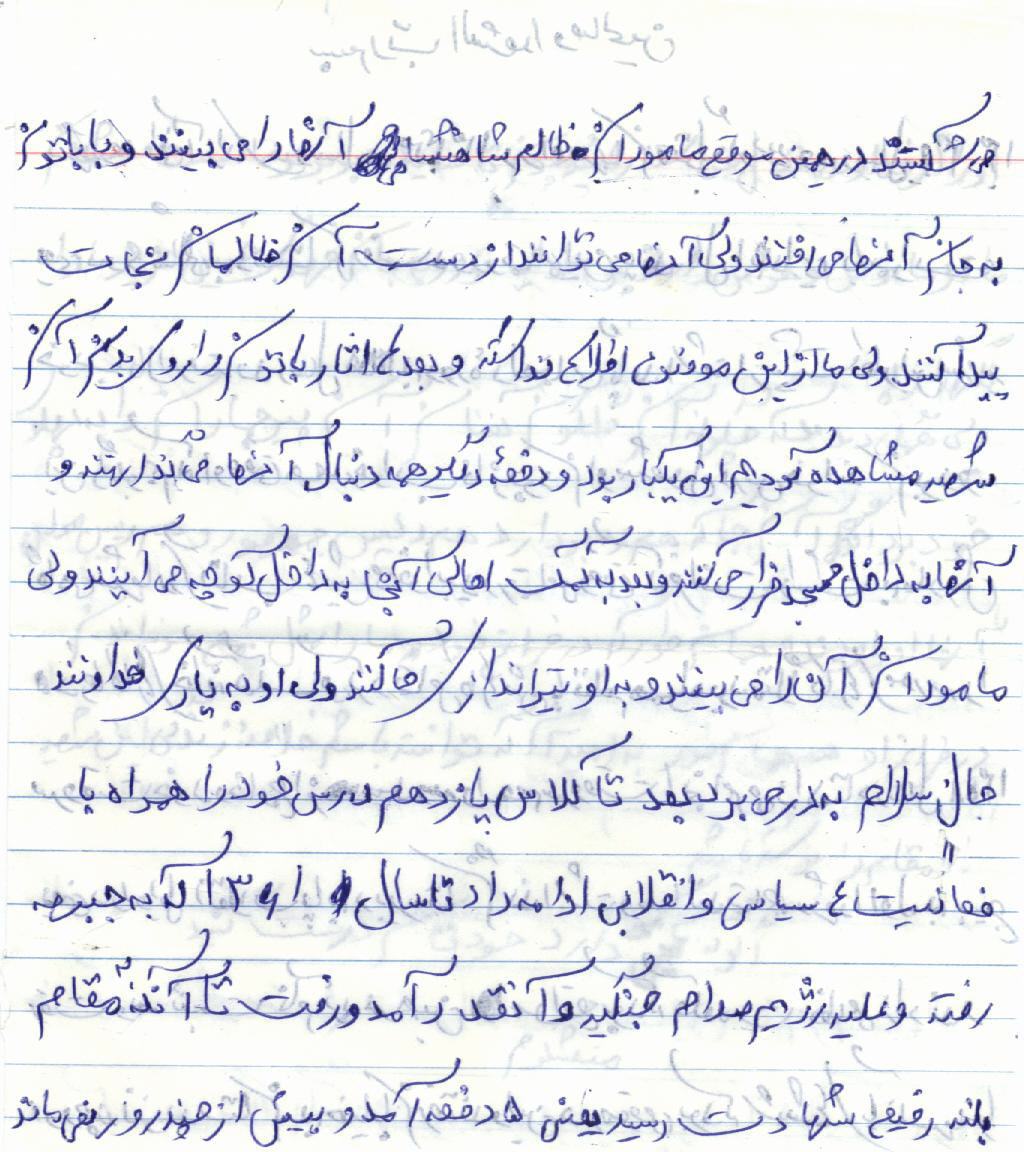 می شکستند در همین موقع ماموران ظالم شاهنشاهی آنها را می بینند و با باتون
به جان آنها می افتند ولی آنها می توانند از دست آن ظالمان نجات
پیدا کنند ولی ما از این موضوع اطلاعی نداشته و بعد اثار باتون را روی بدن آن
شهید مشاهده کردیم این یکبار بود و دفعهٔ دیگر همه دنبال آنها می گذارند و
آنها به داخل مسجد فرار می کنند و بعد به کمک اهالی آنجا به داخل کوچه می آیند ولی
ماموران آن را می بینند و به او تیراندازی می کنند ولی او به یاری خداوند
جان سالم به در می برد بعد تا کلاس یازدهم درس خود را همراه با
فعالیت سیاسی و انقلابی ادامه داد تا سال ۱۳۶۱ که به جبهه
رفته و علیه رژیم صدام جنگید و آنقدر آمد و رفت تا آنکه به مقام
بلند رفیع شهادت رسید یعنی ۵ دفعه آمد و بیش از چند روز نمی ماند